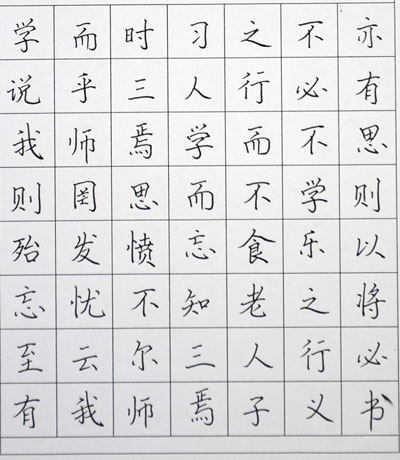 学而时习之不亦
说乎三人行必有
我师焉学而不思
则罔思而不学则
殆发愤忘食乐以
忘忧不知老之将
至云尔三人行必
有我师焉子义书